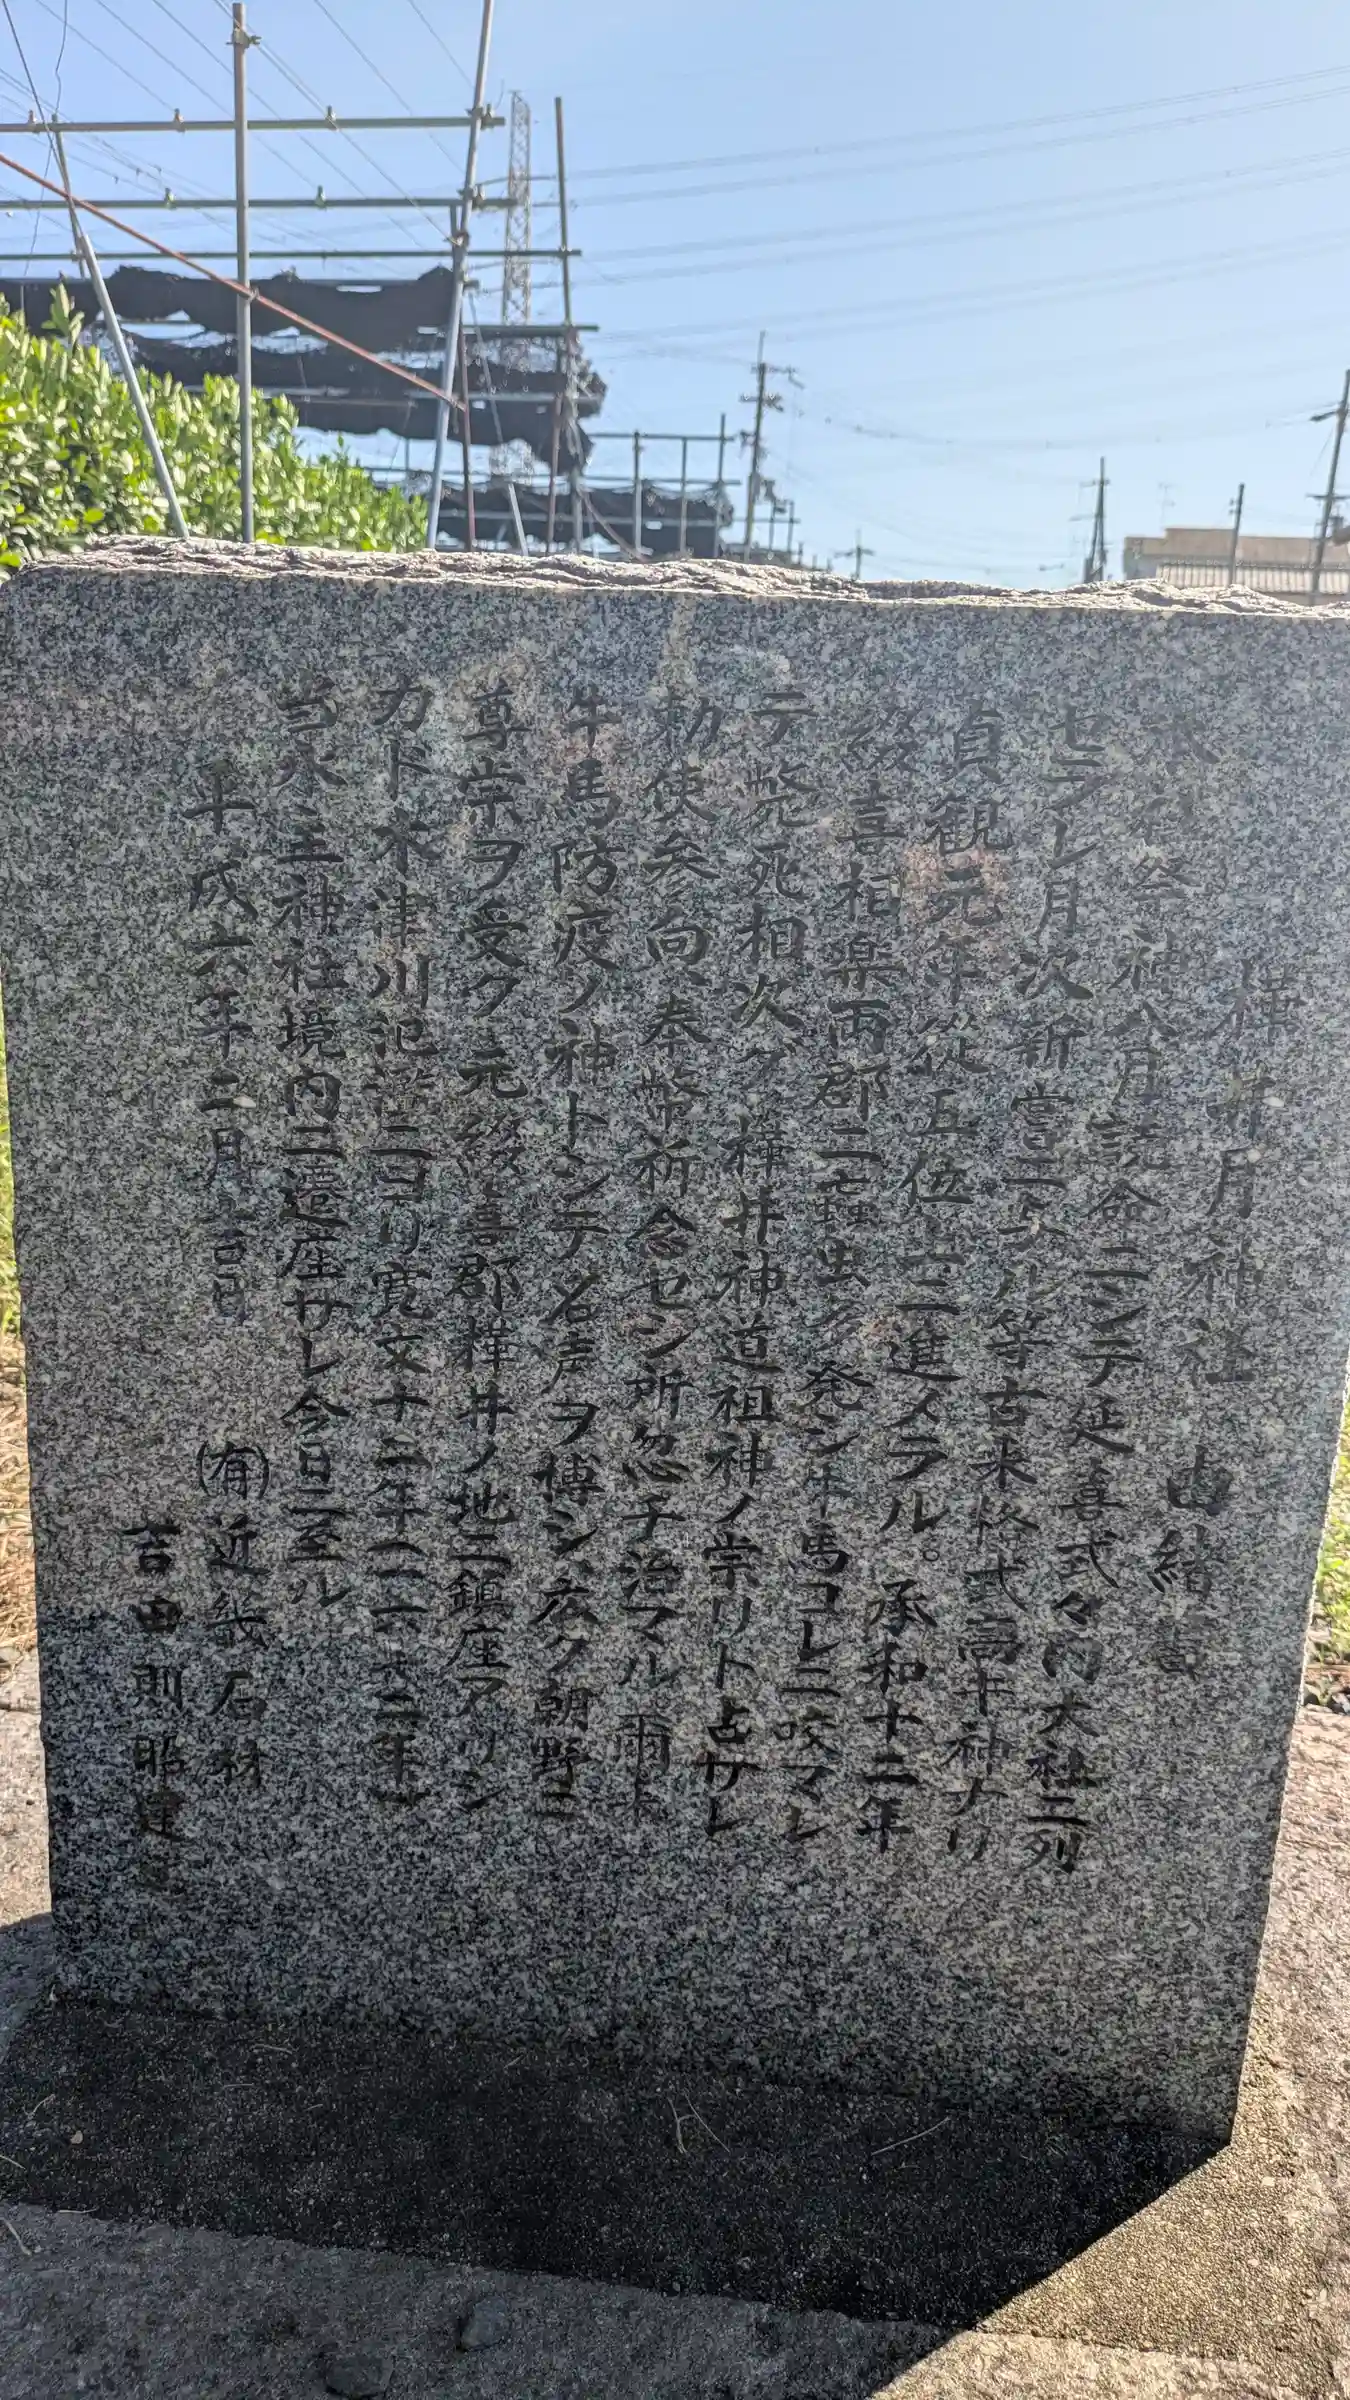 樺井月神社 由緒書
本社祭神八月読命ニシテ延喜式々内大社ニ列
セラレ月次新嘗ニ与ル等古来格式高キ神ナリ
貞観元年従五位上ニ進メラル。承和十二年
綴喜相楽両郡ニ虻虫多ク発シ牛馬コレニ咬マレ
テ斃死相次グ樺井神道祖神ノ祟リト占サレ
勅使参向、奉幣祈念セシ所忽チ治マル爾来
牛馬防疫ノ神トシテ名声ヲ博シ広ク朝野ニ
尊崇ヲ受ク元綴喜郡樺井ノ地ニ鎮座アリシ
カド木津川氾濫ニヨリ寛文十二年一六七二年
当水主神社境内ニ遷座サレ今日ニ至ル
平成六年二月吉日
(有)近畿石材
吉田則昭建